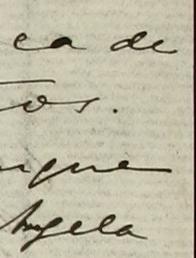 ca de
tos.
nque
Angela